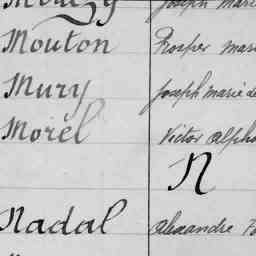 Joseph Marie
Mouton Prosper mari
Mury Joseph marie de
Morel Victor Alpho
N
Nadal Alexandre